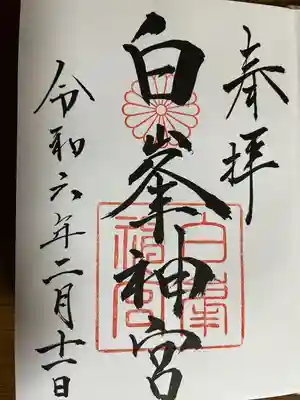 奉拝
白峯神宮
白峯
神宮
令和六年二月十一日